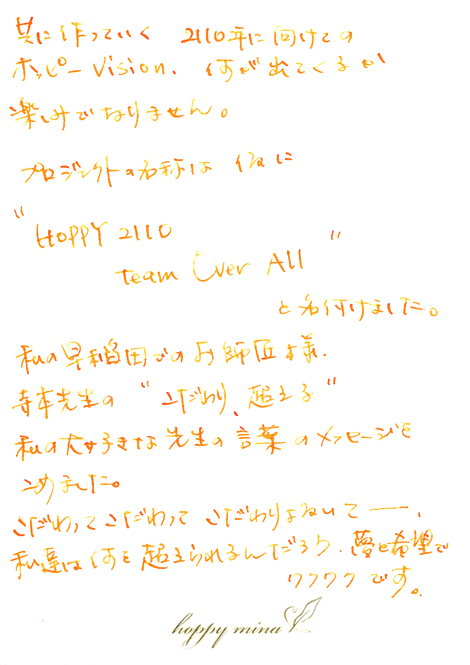 共に作っていく 2110年に向けての
ホッピーVision. 何が出てくるか
楽しみでなりません。
プロジェクトの名称は 仮に
"HOPPY 2110
team Over All"
と名付けました。
私の早稲田でのお師匠様.
寺本先生の "こだわり、超える"
私の大好きな先生の言葉のメッセージを
こめました。
こだわってこだわって こだわりぬいてー.
私達は何を超えられるんだろう. 夢と希望で
ワクワクです。
hoppy mina